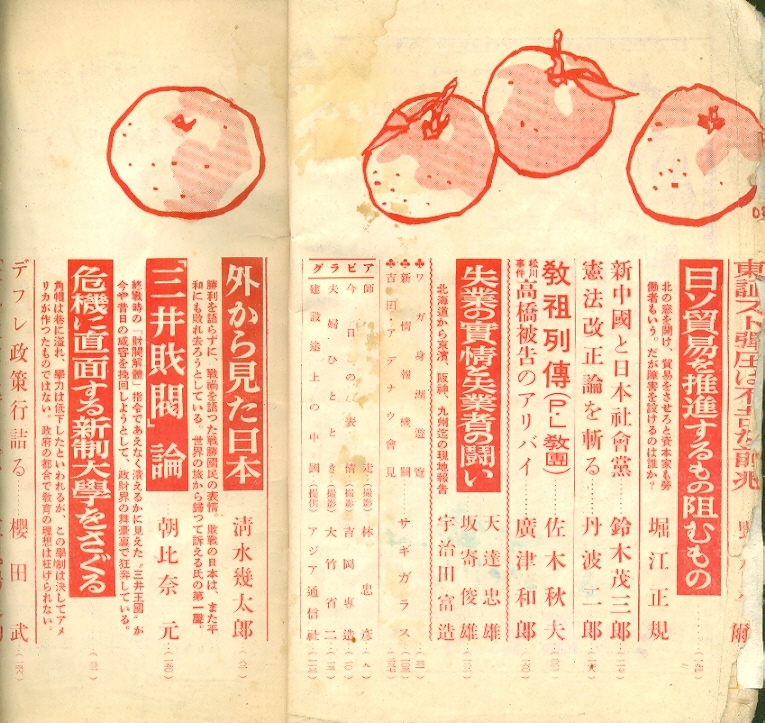 東訓スト弾圧は不吉な前兆
日ソ貿易を推進するもの阻むもの
北の窓を開け、貿易をさせろと資本家も勞
働者もいう。だが障害を設けるのは誰か?
堀江正規
新中國と日本社會黨……鈴木茂三郎
憲法改正論を斬る……丹波二郎
教祖列傳(P.L教團)……佐木秋夫
松川事件 高橋被告のアリバイ……廣津和郎
失業の實情と失業者の闘い
北海道から京濱、阪神、九州迄の現地報告
天達忠雄
坂寄俊雄
宇治田富造
♣ワガ身湖遊覧
♣新情報機關 サギガラス
♣吉田・アデナウ會見
グラビア
師走(撮影)林忠彦
今日の表情(撮影)吉岡専造
夫婦ひととき(撮影)大竹省二
建設途上の中國(提供)アジア通信社
外から見た日本
勝利を語らずに、戰禍を語つた戰勝國民の表情。敗戰の日本は、また平
和にも敗れ去ろうとしている。世界の旅から歸つて訴える氏の第一聲。
清水幾太郎
「三井財閥」論
終戰時の「財閥解體」指令であえなく潰えるかに見えた“三井王國”が
今や昔日の威容を挽回しようとして、政財界の舞臺裏で狂奔している。
朝比奈元
危機に直面する新制大學をさぐる
角帽は巷に溢れ、學力は低下したといわれるが、この學制は決してアメ
リカが作つたものではない。政府の都合で教育の理想は枉げられない。
デフレ政策行詰る……櫻田武